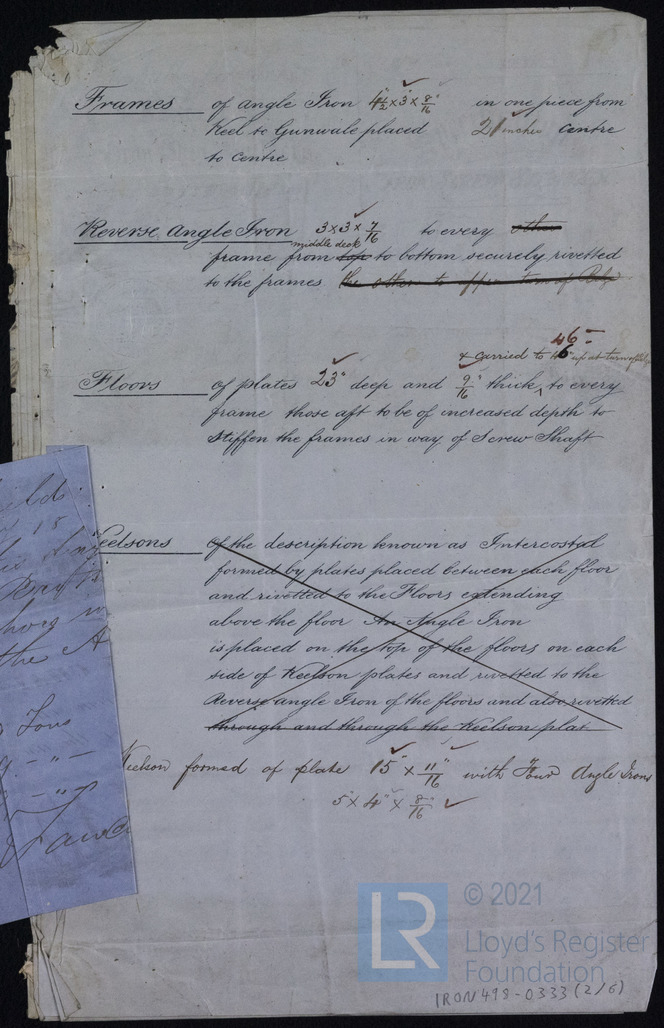 Frames of angle Iron 4½ x 3 x 8/16 in one piece from
Keel to Gunwale placed 21 inches centre
to centre
Reverse Angle Iron 3 x 3 x 7/16 to every other
middle deck
frame from top to bottom securely rivetted
to the frames the other to upper turn of
46
& carried to 46" up at turn of
Floors of plates 23" deep and 9/16" thick, to every
frame those aft to be of increased depth to
stiffen the frames in way of Screw Shaft
Keelsons Of the description known as Intercostal
formed by plates placed between each floor
and rivetted to the Floors extending
above the floor An Angle Iron
is placed on the top of the floors on each
side of Keelson plates and rivetted to the
Reverse angle Iron of the floors and also rivetted
through and through the Keelson plat
Keelson formed of plate 15" x 11/16" with Four Angle Irons
5" x 4" x 8/16"
15
the A
Tons
© 2021
LR
Lloyd's Register
Foundation
IRON498-0333 (2/6)